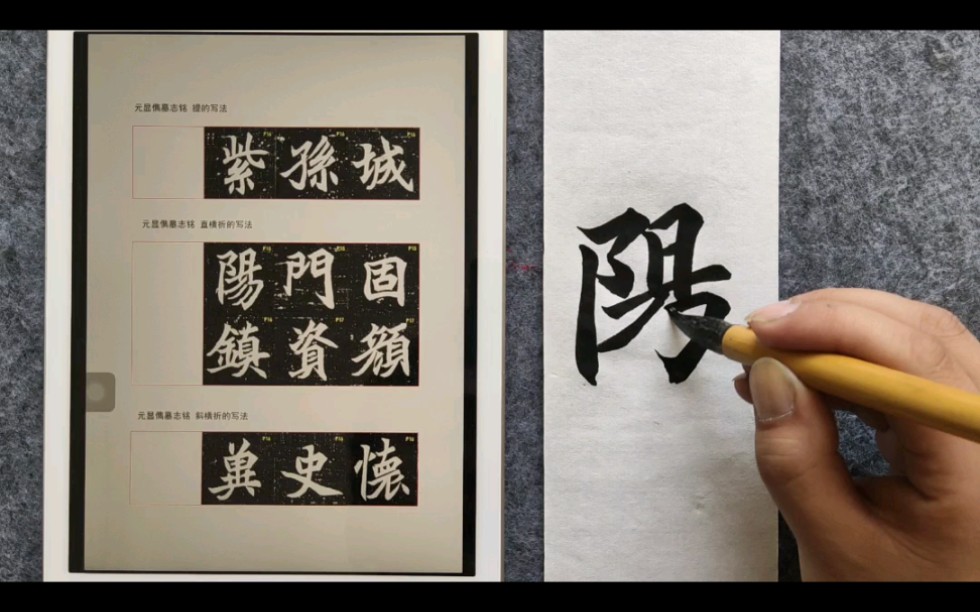 元显儁墓志铭 提的写法
紫孫城
元显儁墓志铭 直横折的写法
陽門固
鎮資顏
元显儁墓志铭 斜横折的写法
冀史懷
陽